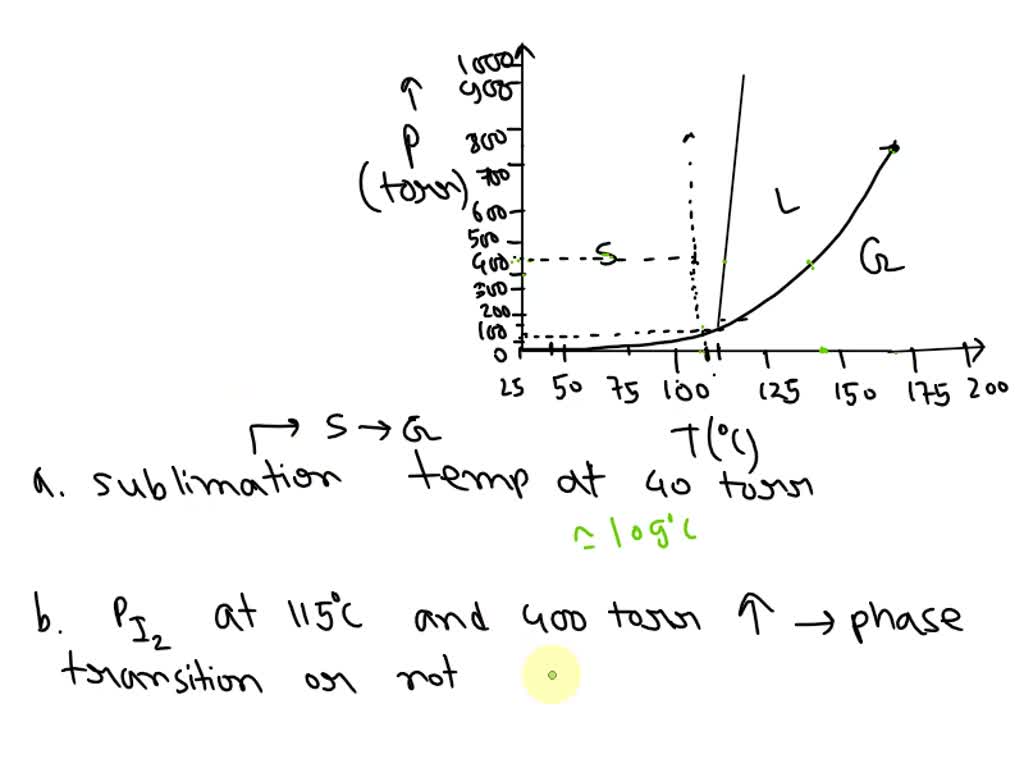 1000
900
↑
P
(torr)
800
700
600
500
400
300
200
100
0
S
L
G
25 50 75 100 125 150 175 200
T(°C)
→ S → G
a. sublimation temp at 40 torr
≃ 109°C
b. P I2 at 115°C and 400 torr ↑ → phase
transition or not